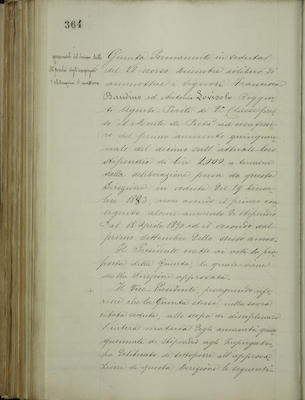 364
Giunta Permanente in seduta
del 12 scorso Dicembre deliberò di
ammettere i Signori Francesco
Bandini ed Antonio
Segreto Periti di 2ª Classe presso
il Monte de
ro del primo aumento quinquen-
nale del decimo sull'attuale loro
Stipendio di Lire 2,000 a termini
della deliberazione presa da questa
Direzione in seduta del 19 Dicem-
bre 1883, non avendo il primo con-
seguito alcun aumento di stipendio
dal 18 Aprile 1890 ed il secondo dal
primo Settembre dello stesso anno.
Il Presidente mette ai voti la pro-
posta della Giunta, la quale viene
dalla Direzione approvata.
Il Vice Presidente, proseguendo, rife-
risce che la Giunta stessa nella sovra
citata seduta, allo scopo di disciplinare
l'intera materia degli aumenti quin-
quennali di Stipendio agli Impiegati,
ha deliberato di sottoporre all'approva-
zione di questa Direzione le seguenti